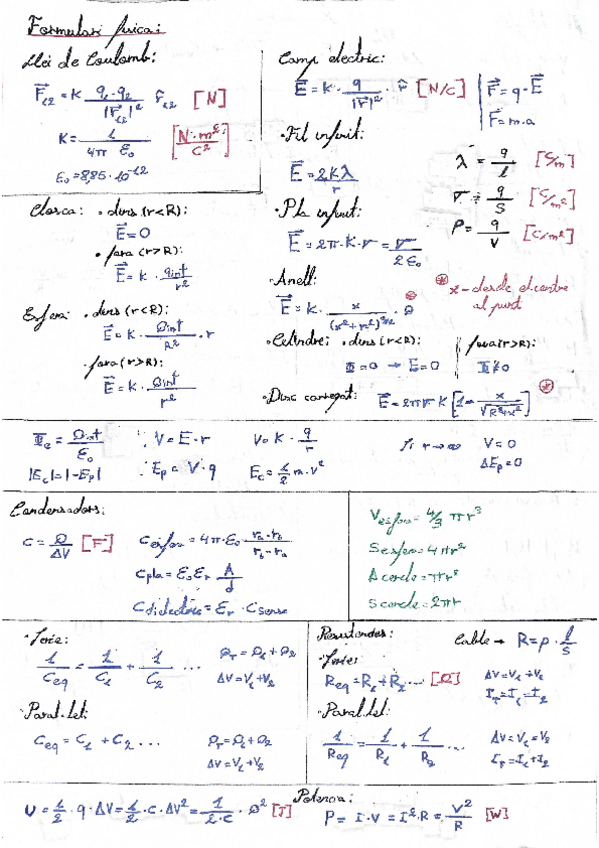 Formulari física:
Llei de Coulomb:
F⃗₁₂ = K q₁·q₂ / |r⃗₁₂|² r̂₁₂ [N]
K = 1 / 4π ε₀ [N·m² / C²]
ε₀ = 8,85·10⁻¹²
Camp elèctric:
E⃗ = K · q / |r⃗|² · r̂ [N/C]
F⃗ = q·E⃗
F⃗ = m·a
• Fil infinit:
E⃗ = 2Kλ / r
λ = q / l [C/m]
σ = q / S [C/m²]
ρ = q / V [C/m²]
• Pla infinit:
E⃗ = 2π·K·σ = σ / 2ε₀
• Anell:
E⃗ = K · x / (x²+r²)^3/2 · Q
x - desde el centre
al punt
Closca: • dins (r<R):
E⃗ = 0
• fora (r>R):
E⃗ = K · qint / r²
Esfera: • dins (r<R):
E⃗ = K · Qint / R² · r
• fora (r>R):
E⃗ = K · Qint / r²
• Cilindre: • dins (r<R):
Φ = 0 → E = 0
fora (r>R):
Φ ≠ 0
• Disc carregat: E⃗ = 2πσ K [1 - x / √R²+x²]
Φe = Qint / ε₀
V = E·r
V = K · q / r
r→∞ V = 0
|Ec| = |-Ep|
Ep = V·q
Ec = 1/2 m·v²
ΔEp = 0
Condensadors:
C = Q / ΔV [F]
Cesfera = 4π·ε₀ · ra·rb / rb-ra
Cpla = ε₀εr A / d
Cdielectric = εr · Csense
Vesfera = 4/3 πr³
Sesfera = 4πr²
Acercle = πr²
Scercle = 2πr
• Sèrie:
1 / Ceq = 1 / C₁ + 1 / C₂ ...
QT = Q₁ = Q₂
ΔV = V₁+V₂
• Paral·lel:
Ceq = C₁ + C₂ ...
QT = Q₁+Q₂
ΔV = V₁+V₂
Resistències:
Cable → R = ρ · l / S
• Sèrie:
Req = R₁+R₂... [Ω]
ΔV = V₁+V₂
IT = I₁ = I₂
• Paral·lel:
1 / Req = 1 / R₁ + 1 / R₂ ...
ΔV = V₁ = V₂
IT = I₁+I₂
U = 1/2 · q · ΔV = 1/2 · C · ΔV² = 1 / 2·C · Q² [J]
Potència:
P = I·V = I²·R = V² / R [W]